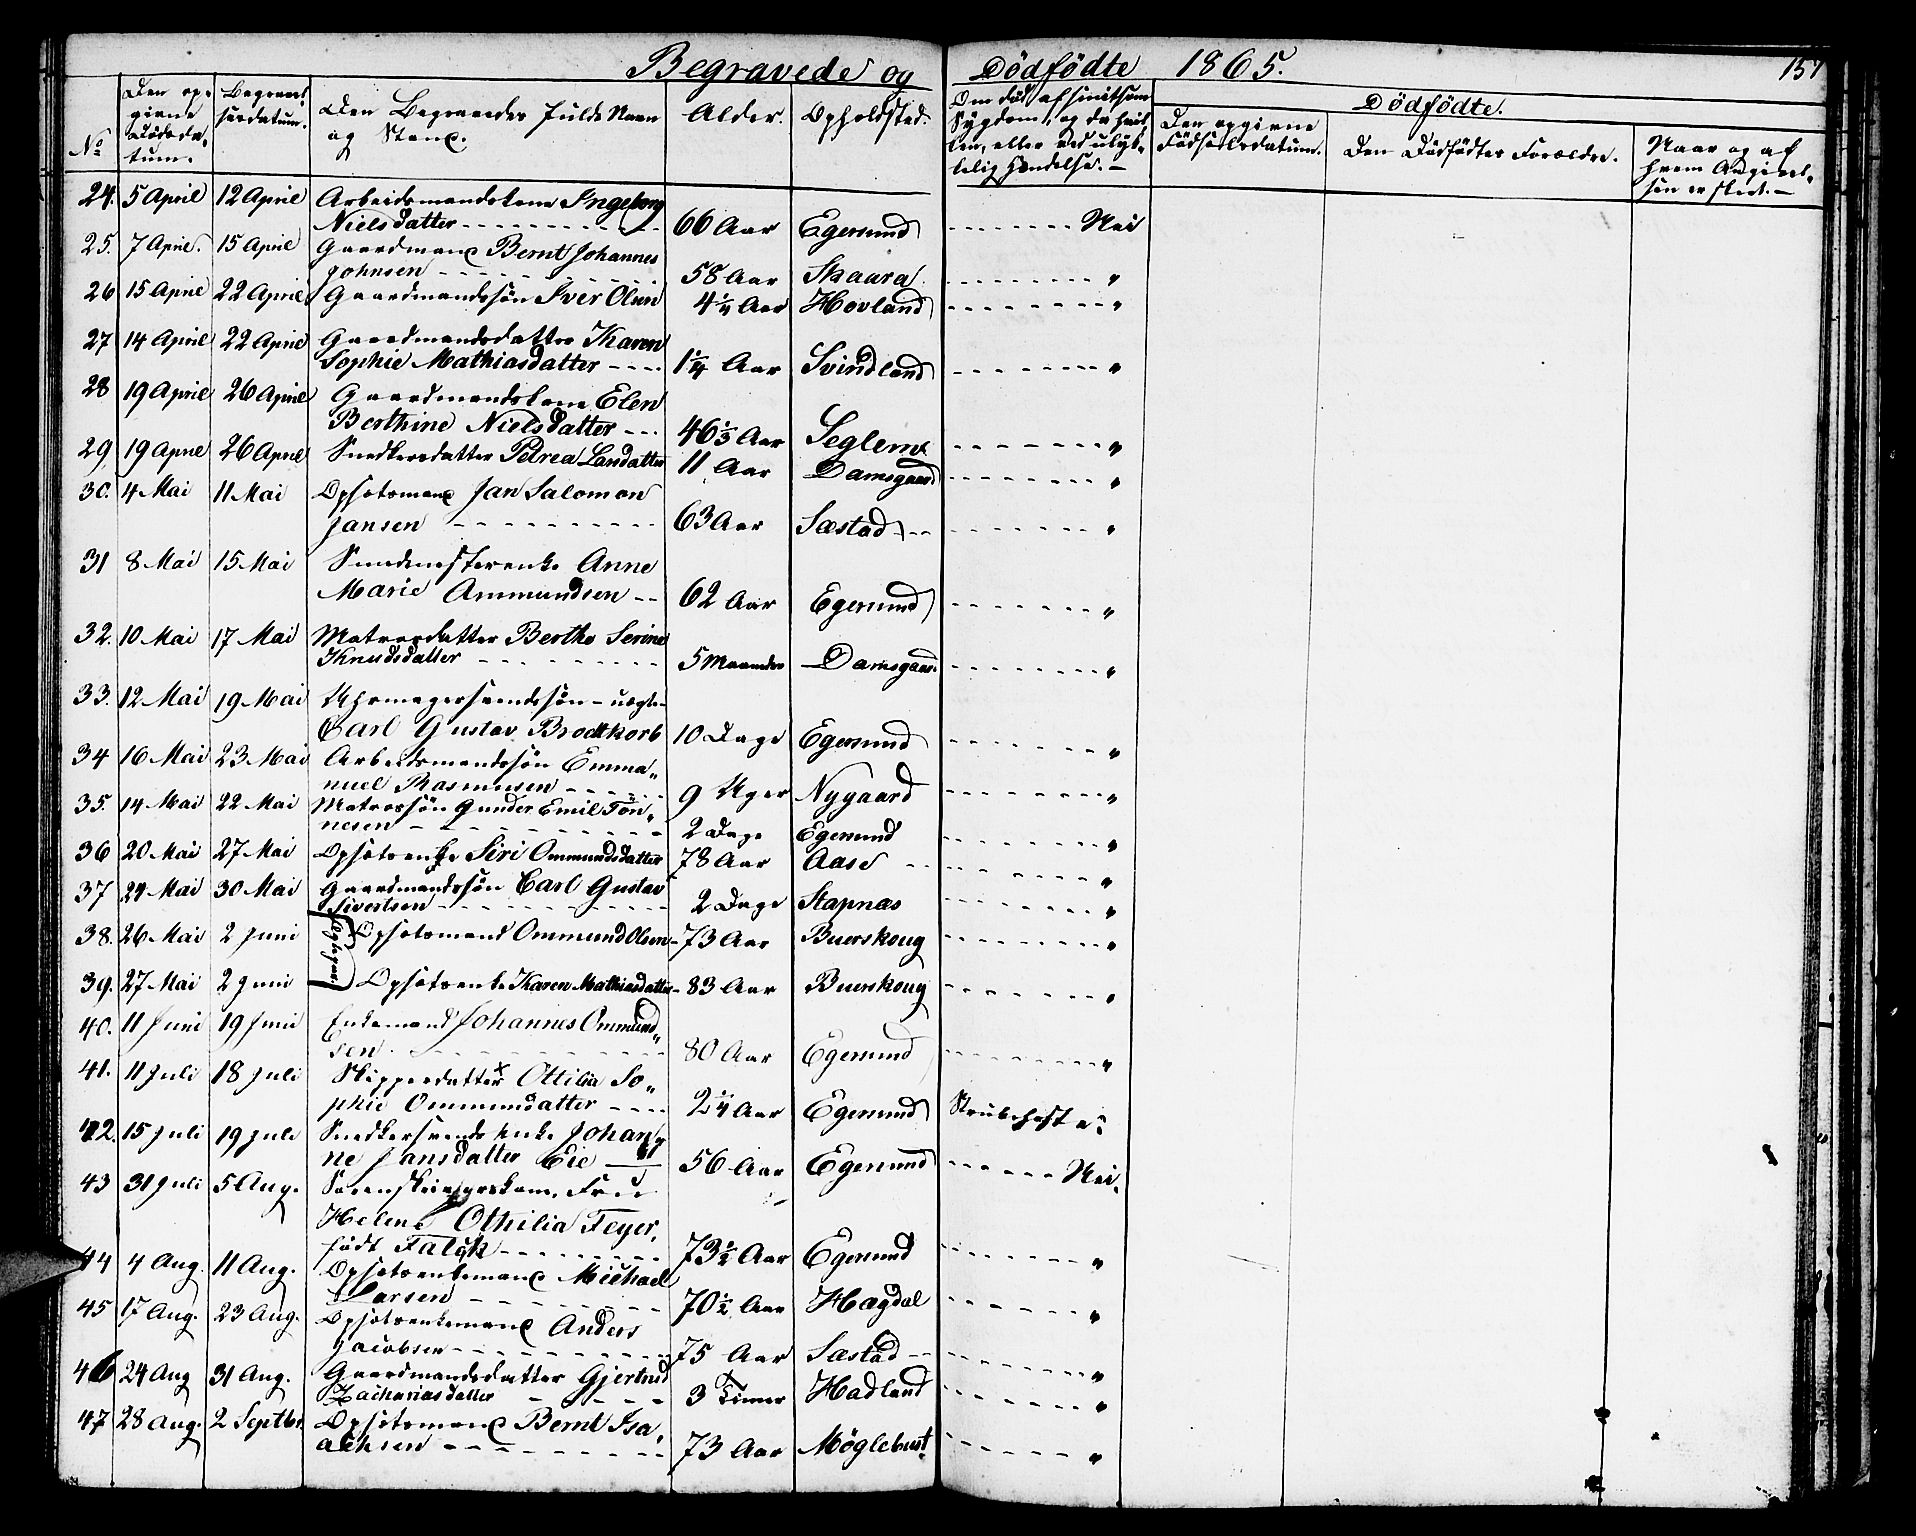 Begravede og Dödfödte 1865. 157
No
Den opgivne Dödsdatum.
Begravelsesdatum.
Den Begravedes fulde Navn og Stand.
Alder.
Opholdsted.
Om död af smitsom Sygdom, og da hvilken, eller ved ulykkelig Hendelse. —
Dödfödte.
Den opgivne Födselsdatum.
Den Dödfödtes Forældre.
Naar og af hvem Angivelsen er skeet. —
24. 5 April 12 April Arbeidsmandskone Ingeborg
Nielsdatter 66 Aar Egersund Nei
25. 7 April. 15 April Gaardmand Bernt Johannes
Johnsen 58 Aar Skaara "
26 15 April 22 April Gaardmandssön Iver Olsen 4 1/4 Aar Hovland "
27 14 April 22 April Gaardmandsdatter Karen
Sophie Mathiasdatter 1 1/4 Aar Svindland "
28 19 April 26 April Gaardmandskone Elen
Berthine Nielsdatter 46 1/3 Aar Seglem "
29 19 April 26 April Snedkersdatter Petrea Larsdatter 11 Aar Damsgaard "
30. 4 Mai 11 Mai Opsötsmand Jan Salomon
Jansen 63 Aar Sæstad "
31 8 Mai 15 Mai Smedmesterenke Anne
Marie Ammundsen 62 Aar Egersund "
32. 10 Mai 17 Mai Matrosdatter Berthe Serine
Knudsdatter 5 Maaneder Damsgaar. "
33. 12 Mai 19 Mai Uhrmagersvendssön - uægte
Carl Gustav Brodtkorb 10 Dage Egersund "
34 16 Mai 23 Mai Arbeidsmandssön Emma„
nuel Rasmussen 9 Uger Nygaard "
35. 14 Mai 22 Mai Matrossön Gunder Emil Tön„
nesen 2 Dage Egersund "
36 20 Mai 27 Mai Opsötsenke Siri Ommundsdatter 78 Aar Aase "
37 24 Mai 30 Mai Gaardmandssön Carl Gustav
Sivertsen 2 Dage Stapnæs "
38. 26 Mai 2 Juni Opsötsmand Ommund Olsen 73 Aar Buerskoug "
39. 27 Mai 2 Juni Opsötsenke Karen Mathiasdatter 83 Aar Buerskoug "
40. 11 Juni 19 Juni Enkemand Johannes Ommund„
sen 80 Aar Egersund "
41. 11 Juli 18 Juli Skipperdatter Ottilia So„
phie Ommundatter 2 1/4 Aar Egersund Strubehoste
42. 15 Juli 19 Juli Snedkersvends Enke Johan„
ne Jansdatter Eie 56 Aar Egersund Nei.
43 31 Juli 5 Aug. Sorenskriverskone, Frue
Helene Othilia Feyer,
födt Falck 73 1/2 Aar Egersund "
44 4 Aug. 11 Aug. Opsötsenkemand Michael
Larsen 70 1/2 Aar Hægdal "
45 17 Aug. 23 Aug. Opsötsenkemand Anders
Jacobsen 75 Aar Sæstad "
46 24 Aug 31 Aug. Gaardmandsdatter Gjertrud
Zachariasdatter 3 Timer Hadland "
47 28 Aug. 2 Septbr. Opsötsmand Bernt Isa„
achsen 73 Aar Möglebust "